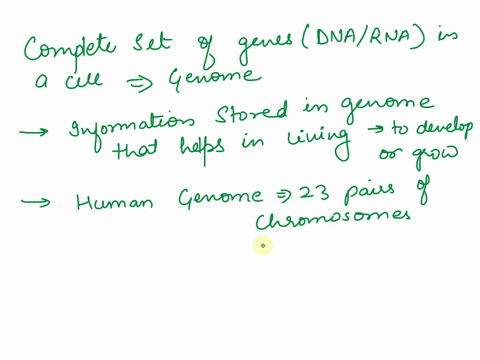 Complete Set of genes (DNA/RNA) in
a cell ⇒ Genome
→ Information Stored in genome
that helps in living → to develop
or grow
→ Human Genome ⇒ 23 pairs of
Chromosomes